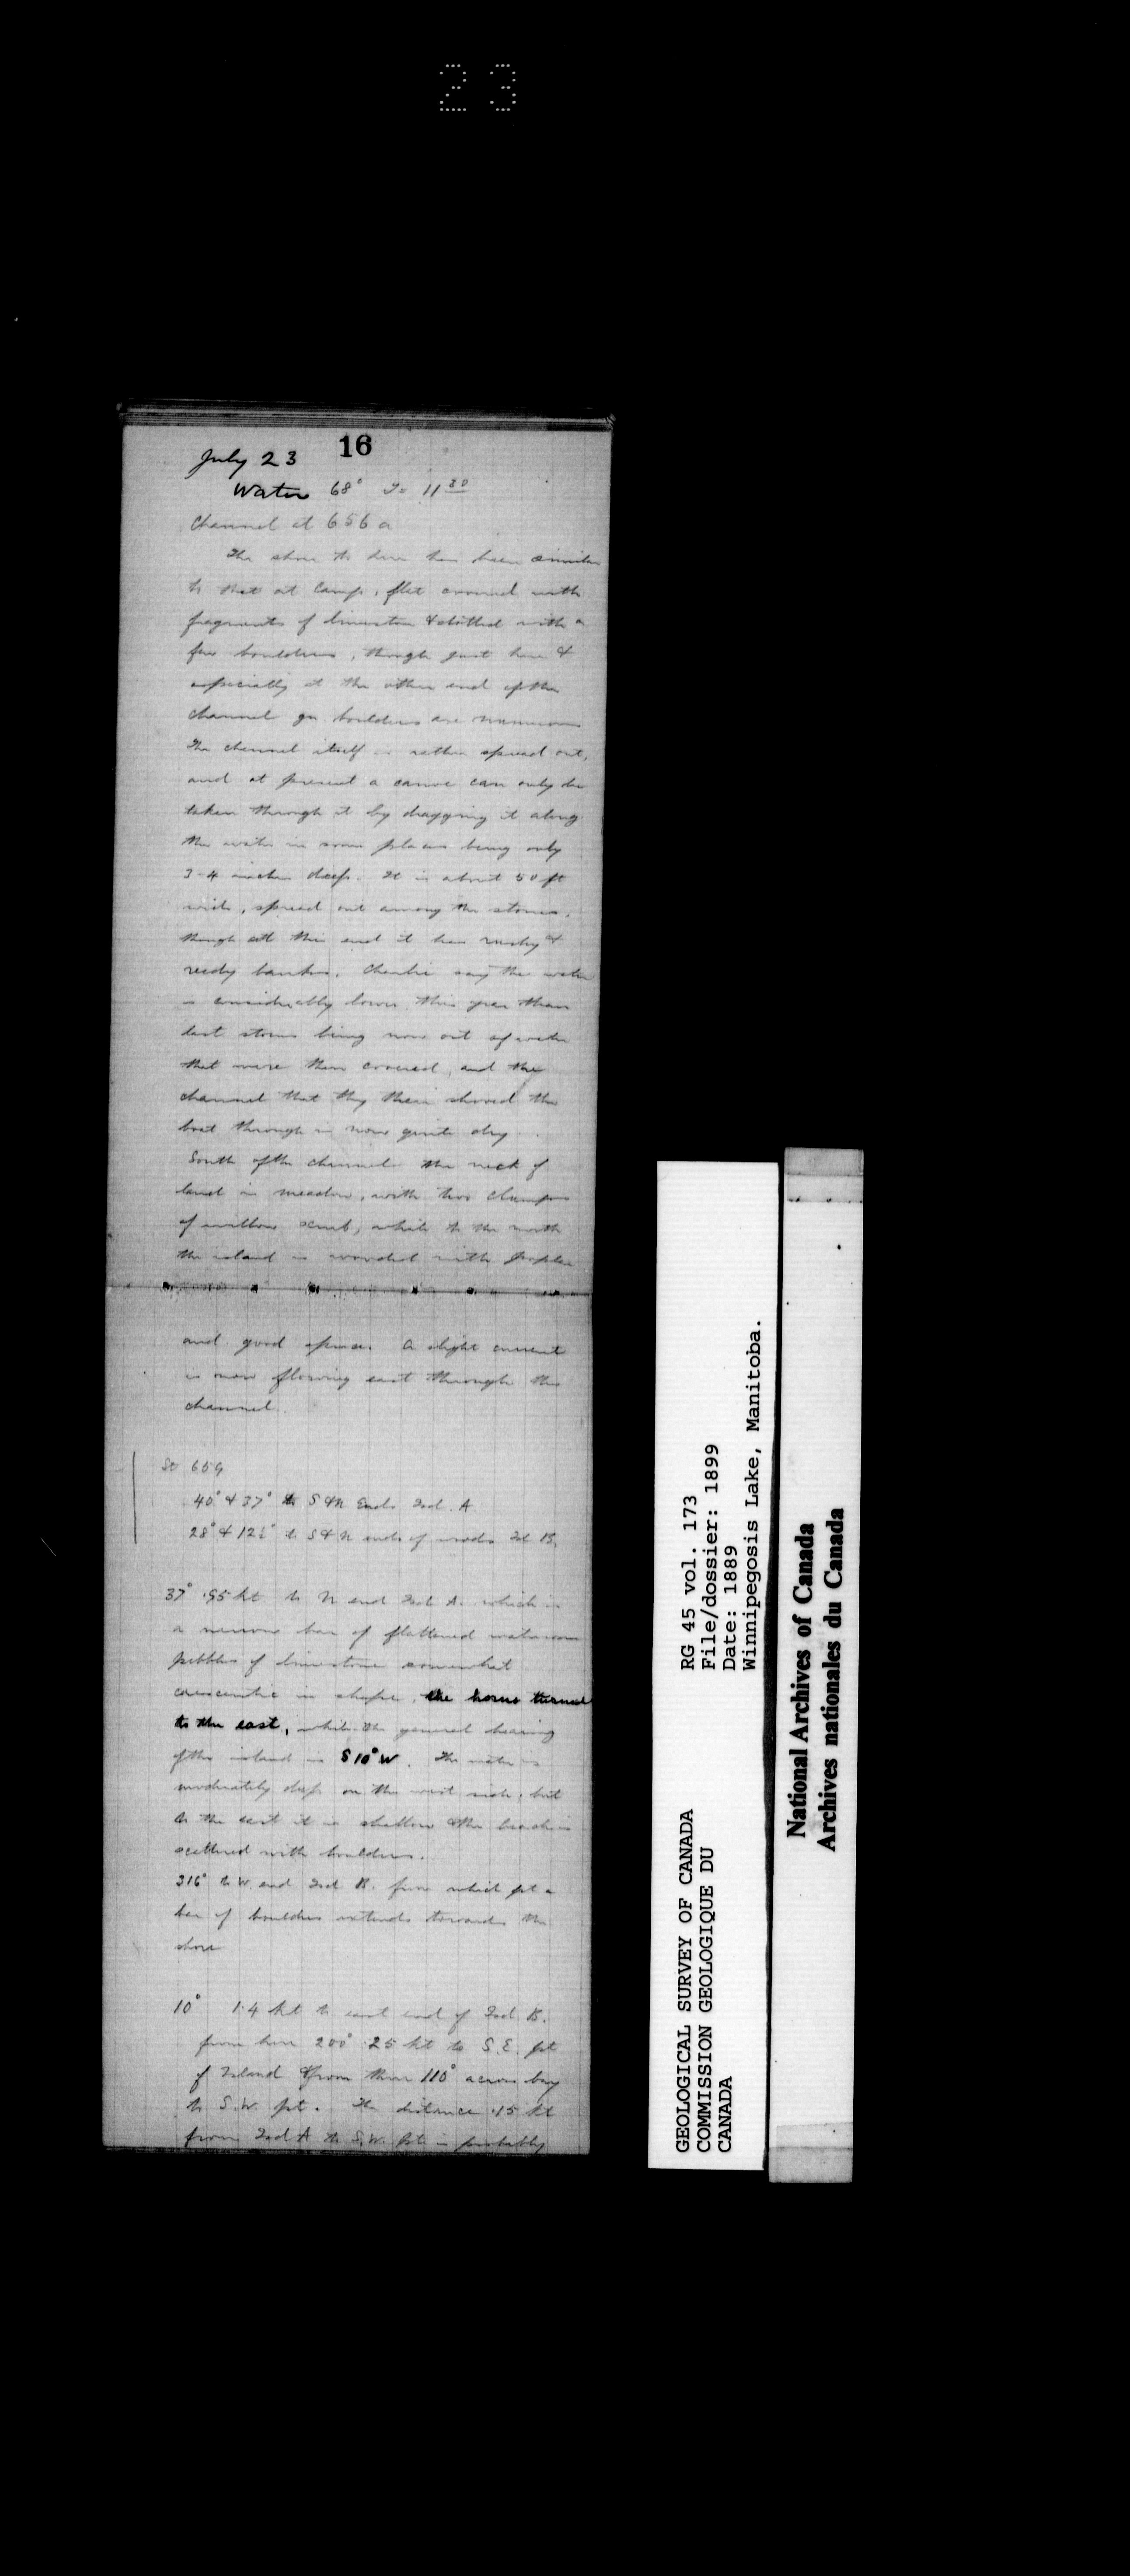 23
16
July 23
Water 68° 11 30
Channel at 656 a
The shore to here has been similar
to that at Camp, flat covered with
fragments of limestone & dotted with a
few boulders, though just here &
especially at the other end of the
channel boulders are numerous
The channel itself is rather spread out,
and at present a canoe can only be
taken through it by dragging it along
the water in some places being only
3-4 inches deep. It is about 50 ft
wide, spread out among the stones,
though at this end it has rushy &
reedy banks. Charlie says the water
is considerably lower this year than
last stones being now out of water
that were then covered, and the
channel that they then shoved the
boat through is now quite dry
South of the channel the neck of
land is meadow, with two clumps
of willow scrub, while to the north
the island is wooded with poplar
and good spruce. A slight current
is now flowing east through the
channel.
St 659
40° & 37° to S & N Ends Isd. A
28° & 12½° to S & N ends of woods Isd B.
37° .95 kt to N end Isd A. which is
a narrow bar of flattened waterworn
pebbles of limestone somewhat
crescentic in shape, the horns turned
to the east, while the general bearing
of the island is S 10° W. The water is
moderately deep on the west side, but
to the east it is shallow & the beach is
scattered with boulders.
316° to W end Isd B. from which pt a
bar of boulders extends towards the
shore
10° 1.4 kt to east end of Isd B.
from here 200° .25 kt to S.E. pt
of Island & from there 110° across bay
to S.W. pt. The distance .15 kt
from Isd A to S.W. pt is probably
GEOLOGICAL SURVEY OF CANADA
COMMISSION GEOLOGIQUE DU
CANADA
RG 45 vol. 173
File/dossier: 1899
Date: 1889
Winnipegosis Lake, Manitoba.
National Archives of Canada
Archives nationales du Canada